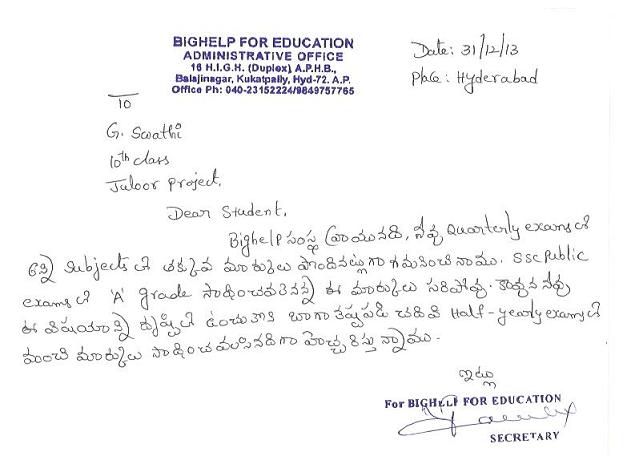 BIGHELP FOR EDUCATION
ADMINISTRATIVE OFFICE
16 H.I.G.H. (Duplex) A.P.H.B.,
Balajinagar, Kukatpally, Hyd-72. A.P.
Office Ph: 040-23152224/9849757765
Date: 31/12/13
Place: Hyderabad
To
G. Swathi
10th class
Juloor Project.
Dear Student,
Bighelp సంస్థ వ్రాయునది, నీవు Quarterly exams లో
కొన్ని Subjects లో తక్కువ మార్కులు పొందినట్లుగా గమనించినాము. SSC Public
exams లో 'A' grade సాధించవలెనన్న ఈ మార్కులు సరిపోవు. కావున నీవు
ఈ విషయాన్ని దృష్టిలో ఉంచుకొని బాగా కష్టపడి చదివి Half-yearly exams లో
మంచి మార్కులు సాధించవలసినదిగా హెచ్చరిస్తున్నాము.
ఇట్లు
For BIGHELP FOR EDUCATION
SECRETARY